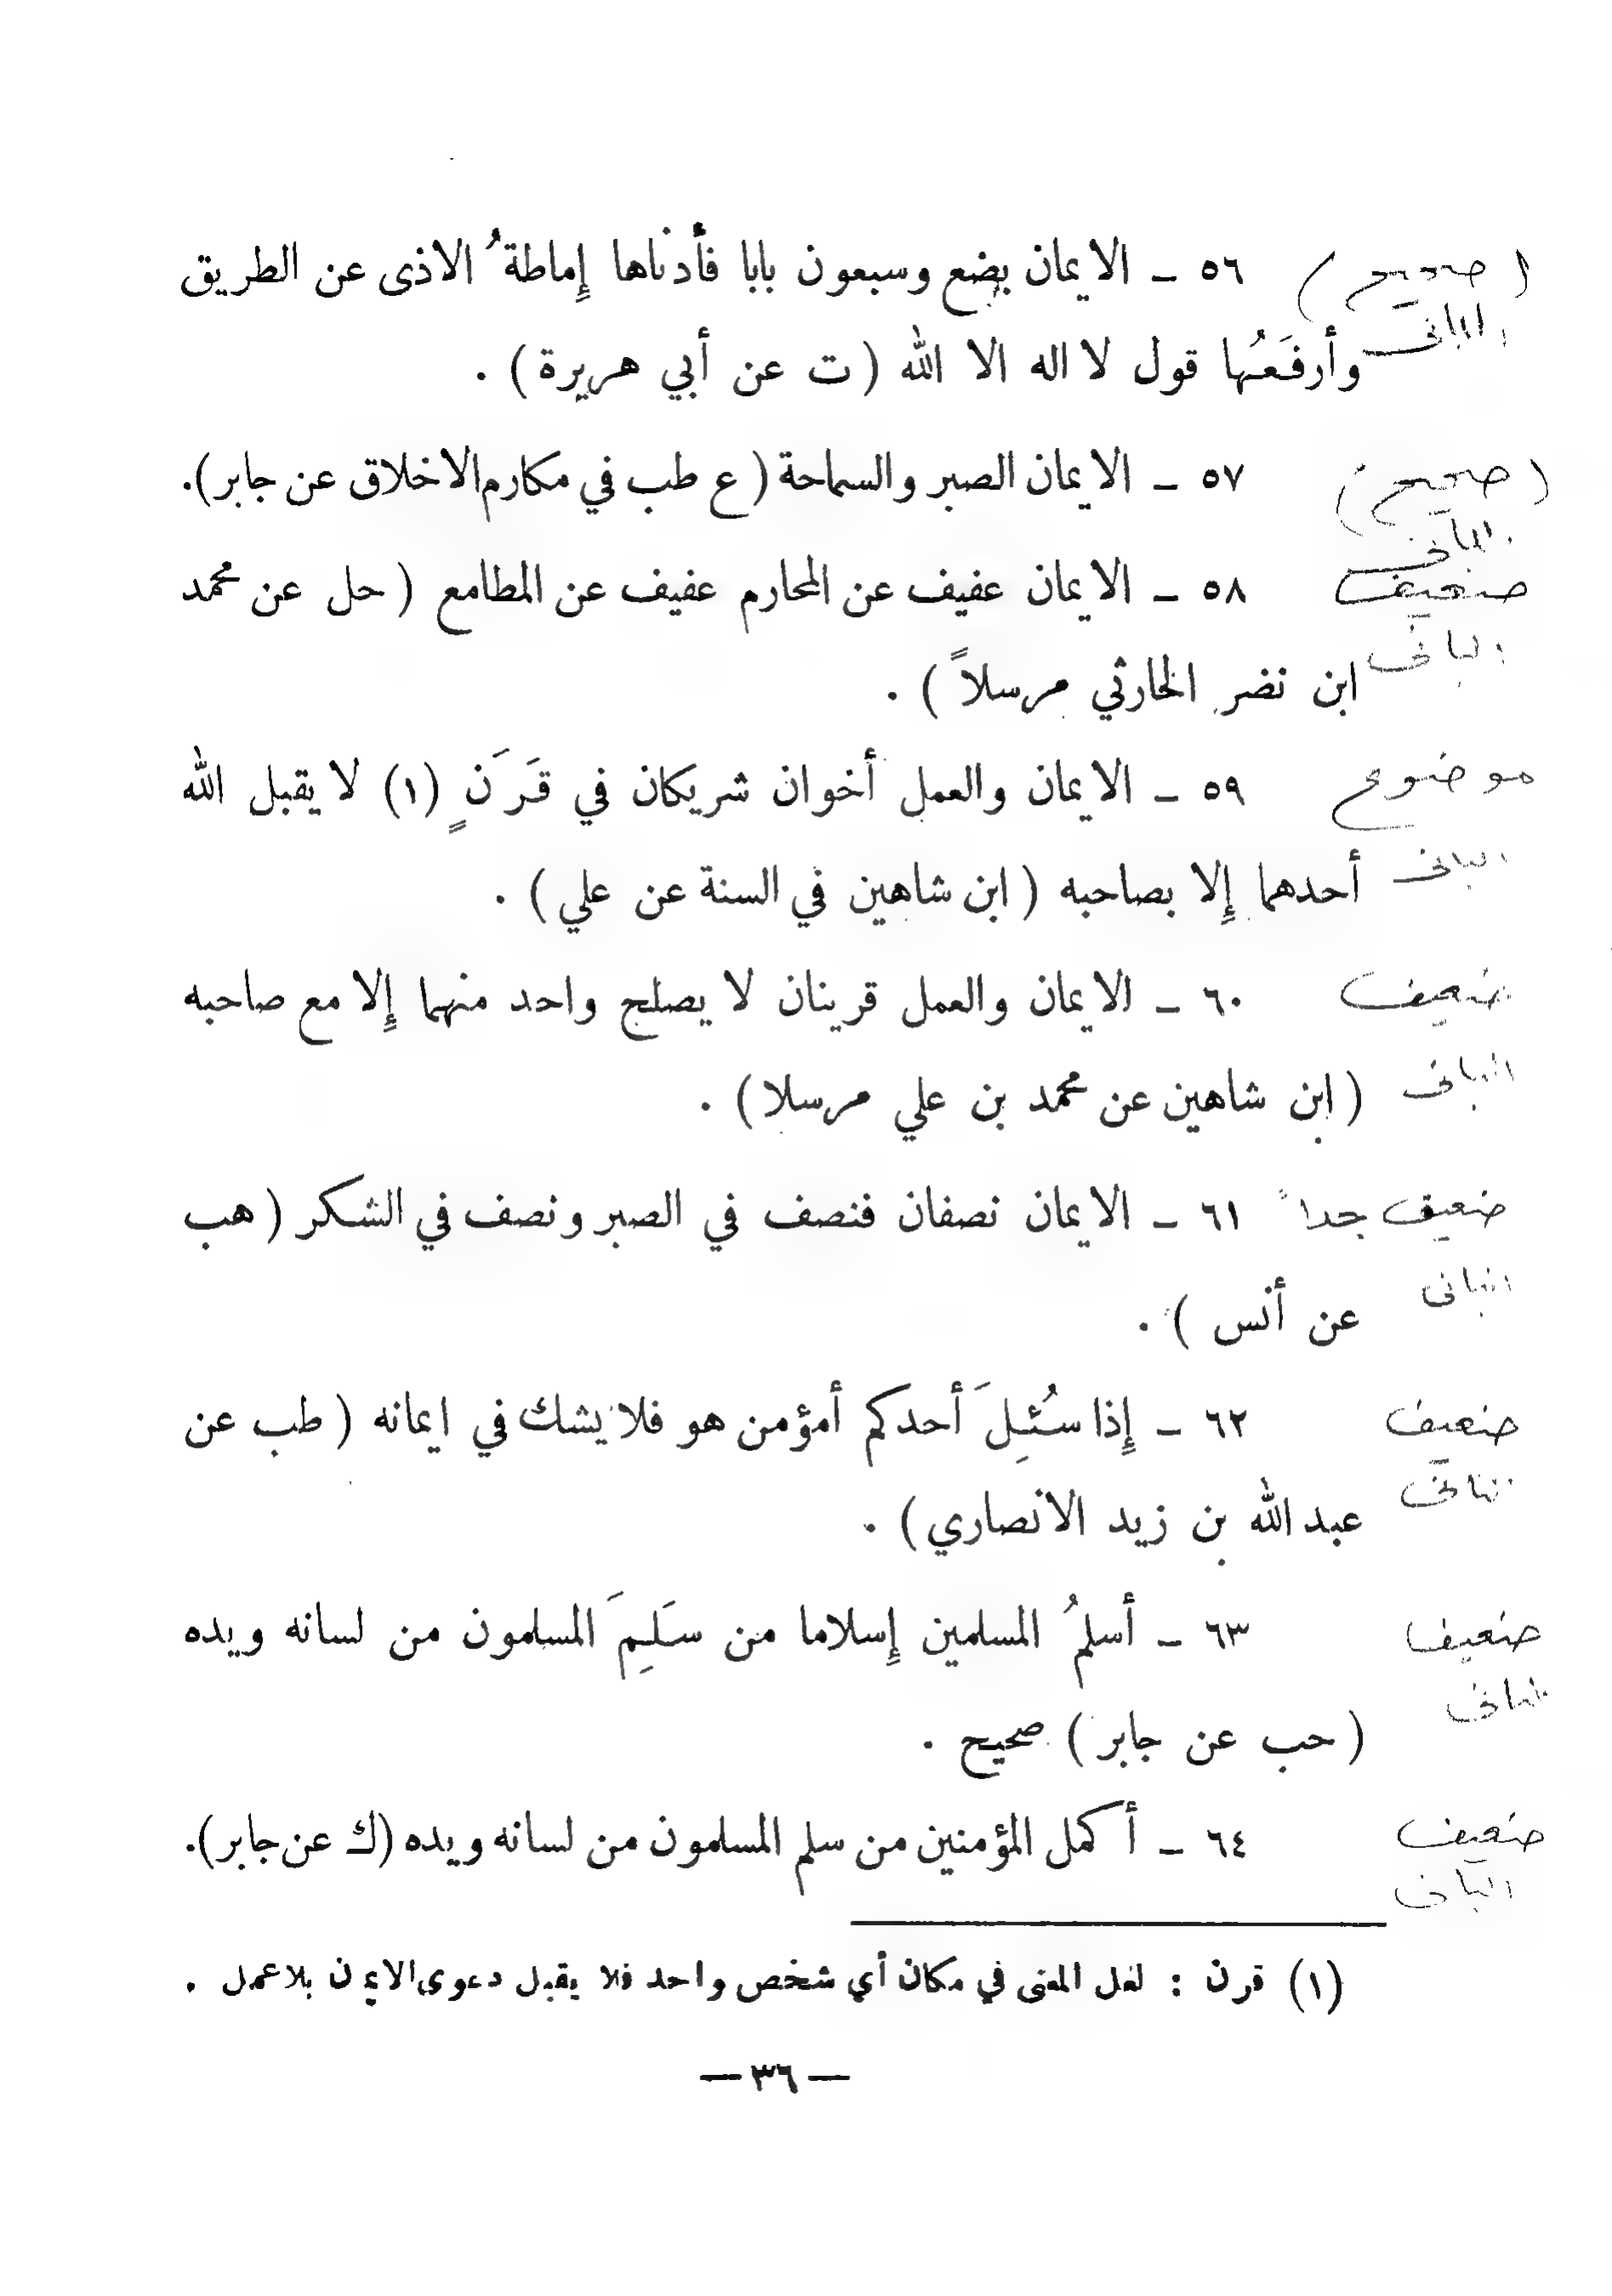 (صحيح) ٥٦ - الايمان بضع وسبعون بابا فأدناها إماطةُ الاذى عن الطريق
البانى وأرفَعُها قول لا اله الا الله ( ت عن أبي هريرة ) .
(صحيح) ٥٧ - الايمان الصبر والسماحة ( ع طب في مكارم الاخلاق عن جابر).
البانى
ضعيف ٥٨ - الايمان عفيف عن المحارم عفيف عن المطامع ( حل عن محمد
البانى ابن نضر الحارثي مرسلاً ) .
موضوع ٥٩ - الايمان والعمل أخوان شريكان في قَرَنٍ (١) لا يقبل الله
البانى أحدهما إلا بصاحبه ( ابن شاهين في السنة عن علي ) .
ضعيف ٦٠ - الايمان والعمل قرينان لا يصلح واحد منهما إلا مع صاحبه
البانى ( ابن شاهين عن محمد بن علي مرسلا ) .
ضعيف جداً ٦١ - الايمان نصفان فنصف في الصبر ونصف في الشكر ( هب
البانى عن أنس ) .
ضعيف ٦٢ - إذا سُئِلَ أحدكم أمؤمن هو فلا يشك في ايمانه ( طب عن
البانى عبد الله بن زيد الانصاري ) .
ضعيف ٦٣ - أسلمُ المسلمين إسلاما من سَلِمَ المسلمون من لسانه ويده
البانى ( حب عن جابر ) صحيح .
ضعيف ٦٤ - أكمل المؤمنين من سلم المسلمون من لسانه ويده (ك عن جابر).
البانى
(١) قرن : لعل المعنى في مكان أي شخص واحد فلا يقبل دعوى الايمان بلا عمل .
— ٣٦ —